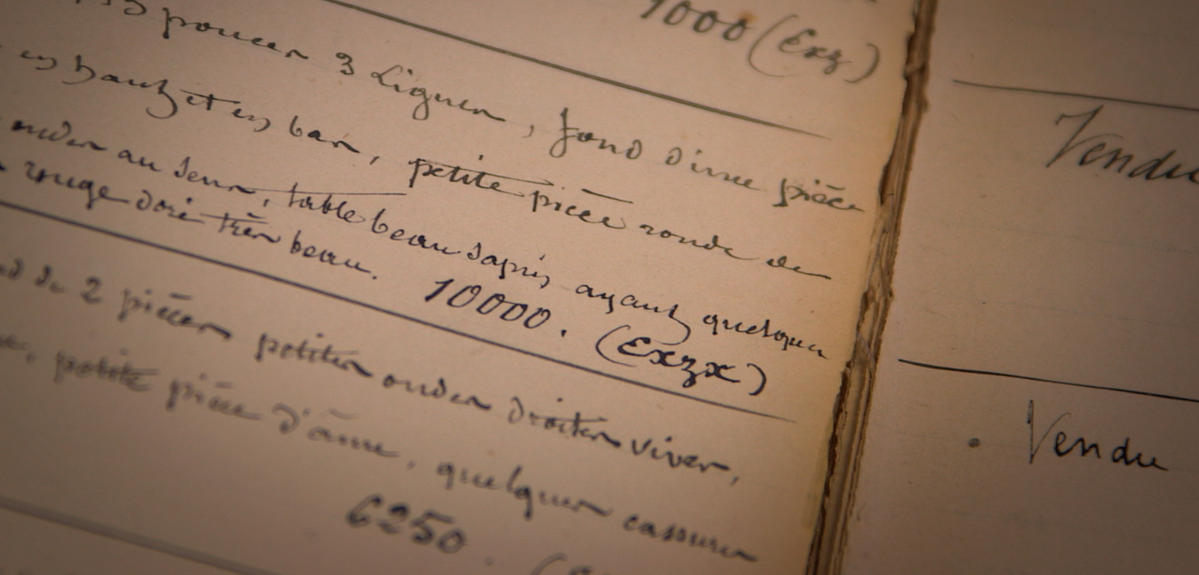 1000 (Exz)
13 pouces 3 Lignes, fond d'une pièce
en haut et en bas, petite pièce ronde de
ondes au sens, table beau sapin ayant quelques
rouge doré très beau. 10000. (Exzx)
de 2 pièces petites ondes droites vives,
petite pièce d'âme, quelques cassures
6250.
Vendu
. Vendu